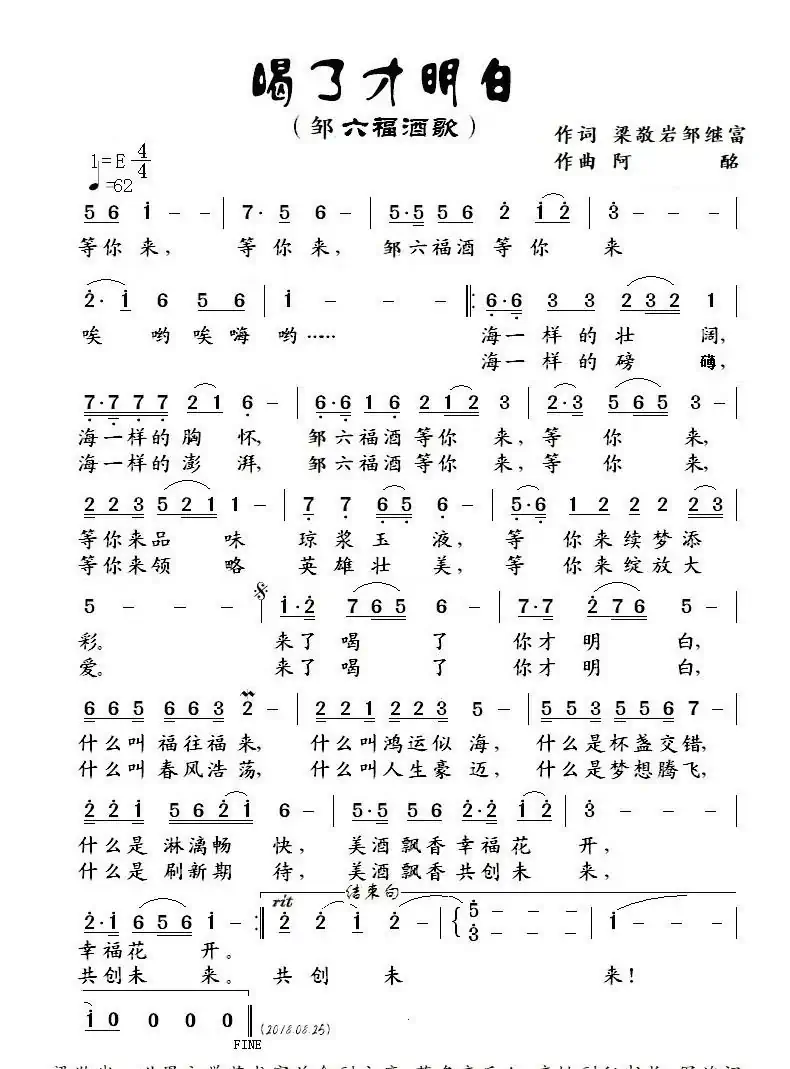 喝了才明白
（邹六福酒歌）
作词 梁敬岩邹继富
作曲 阿 酩
1=E 4/4
♩=62
5 6 i̇ - - | 7· 5 6 - | 5·5 5 6 2̇ i̇ 2̇ | 3̇ - - - |
等你来， 等你来， 邹六福酒等你来
2̇·i̇ 6 5 6 | i̇ - - - |: 6̣·6̣ 3 3 2 3 2 1 |
唉哟唉嗨哟…… 海一样的壮阔，
海一样的磅礴，
7̣·7̣ 7̣ 7̣ 2 1 6̣ - | 6̣·6̣ 1 6̣ 2 1 2 3 | 2·3 5 6 5 3 |
海一样的胸怀，邹六福酒等你来，等你来，
海一样的澎湃，邹六福酒等你来，等你来，
2 2 3 5 2 1 1 - | 7̣ 7̣ 6̣ 5̣ 6̣ - | 5̣·6̣ 1 2 2 2 3 |
等你来品味琼浆玉液，等你来续梦添
等你来领略英雄壮美，等你来绽放大
5 - - - | i̇·2̇ 7 6 5 6 - | 7·7 2̇ 7 6 5 - |
彩。 来了喝了你才明白，
爱。 来了喝了你才明白，
6 6 5 6 6 3 2̇ - | 2 2 1 2 2 3 5 - | 5 5 3 5 5 6 7 - |
什么叫福往福来，什么叫鸿运似海，什么是杯盏交错，
什么叫春风浩荡，什么叫人生豪迈，什么是梦想腾飞，
2̇ 2̇ i̇ 5 6 2̇ i̇ 6 - | 5·5 5 6 2̇·2̇ i̇ 2̇ | 3̇ - - - |
什么是淋漓畅快，美酒飘香幸福花开，
什么是刷新期待，美酒飘香共创未来，
rit 结束句
2̇·i̇ 6 5 6 i̇ - :| 2̇ 2̇ i̇ 2̇ - | { 5̇ - - - 3̇ - - - | i̇ - - - |
幸福花开。
共创未来。共创未来！
i̇ 0 0 0 0 ‖ (2018.08.25)
FINE